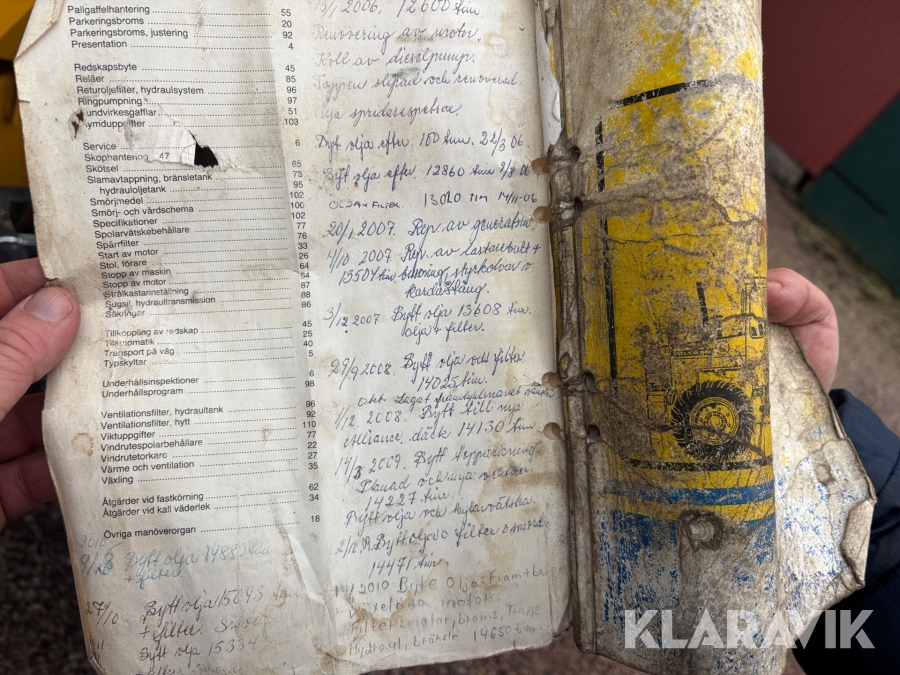 Pallgaffelhantering 55
Parkeringsbroms 20
Parkeringsbroms, justering 92
Presentation 4
Redskapsbyte 45
Reläer 85
Returoljefilter, hydraulsystem 96
Ringpumpning 97
undvirkesgafflar 51
ymduppgifter 103
Service 6
Skophantering 47
Skötsel 65
Slamavtappning, bränsletank 73
hydrauloljetank 95
Smörjmedel 102
Smörj- och vårdschema 100
Specifikationer 102
Spolarvätskebehållare 77
Spärrfilter 76
Start av motor 33
Stol, förare 26
Stopp av maskin 64
Stopp av motor 54
Strålkastarinställning 87
Sugsil, hydraultransmission 88
Säkringar 86
Tillkoppling av redskap 45
Tiltautomatik 25
Transport på väg 40
Typskyltar 5
Underhållsinspektioner 6
Underhållsprogram 98
Ventilationsfilter, hydraultank 96
Ventilationsfilter, hytt 92
Viktuppgifter 110
Vindrutespolarbehållare 77
Vindrutetorkare 22
Värme och ventilation 27
Växling 35
Åtgärder vid fastkörning 62
Åtgärder vid kall väderlek 34
Övriga manöverorgan 18
Bytt olja 14885
+ filter
27/10 Bytt olja 15093
+ filter.
Bytt olja 15334
2006, 12600 tim
Renovering av motor.
Koll av dieselpump.
Toppen slipad och renoverad
nya spridarespetsar
Bytt olja efter 100 tim. 22/3 06
Bytt olja efter 12860 tim 9/8 06
OLJA + Filter 13020 TIM 14/11-06
20/1 2007. Rep. av generator.
4/10 2007 Rep. av lastarebult +
13507 tim
Kardastång.
3/12 2007 Bytt olja 13608 tim.
olja + filter.
29/9 2008. Bytt olja och filter
14025 tim.
1/12. 2008. Bytt till nya
Alliance. däck 14130 tim
2009. Bytt
Planad och nya
14227 tim.
Bytt olja och kylarvätska.
Bytt olja o filter
14471 tim.
2010 Byte Olja Fram + bak
motor
Filter motor, broms, Trans
Hydraul, bränsle 14650 tim
KLARAVIK